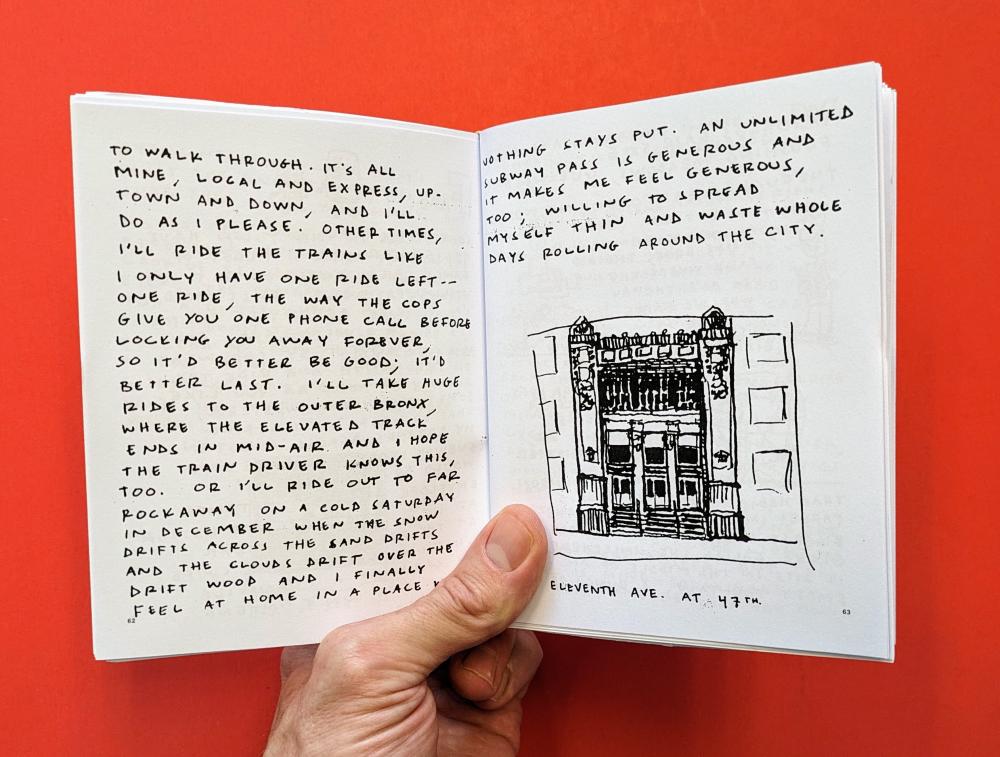 TO WALK THROUGH. IT'S ALL
MINE, LOCAL AND EXPRESS, UP-
TOWN AND DOWN, AND I'LL
DO AS I PLEASE. OTHER TIMES,
I'LL RIDE THE TRAINS LIKE
I ONLY HAVE ONE RIDE LEFT--
ONE RIDE, THE WAY THE COPS
GIVE YOU ONE PHONE CALL BEFORE
LOCKING YOU AWAY FOREVER,
SO IT'D BETTER BE GOOD; IT'D
BETTER LAST. I'LL TAKE HUGE
RIDES TO THE OUTER BRONX,
WHERE THE ELEVATED TRACK
ENDS IN MID-AIR AND I HOPE
THE TRAIN DRIVER KNOWS THIS,
TOO. OR I'LL RIDE OUT TO FAR
ROCKAWAY ON A COLD SATURDAY
IN DECEMBER WHEN THE SNOW
DRIFTS ACROSS THE SAND DRIFTS
AND THE CLOUDS DRIFT OVER THE
DRIFT WOOD AND I FINALLY
FEEL AT HOME IN A PLACE
62
NOTHING STAYS PUT. AN UNLIMITED
SUBWAY PASS IS GENEROUS AND
IT MAKES ME FEEL GENEROUS,
TOO; WILLING TO SPREAD
MYSELF THIN AND WASTE WHOLE
DAYS ROLLING AROUND THE CITY.
ELEVENTH AVE. AT 47TH.
63